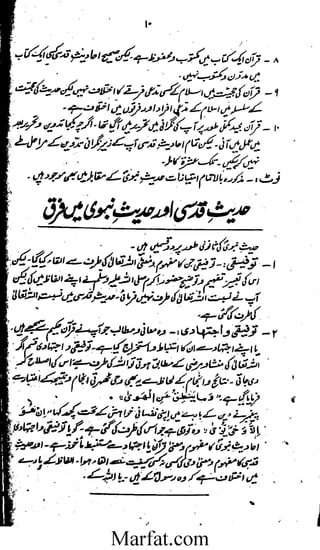 ۱۰
۸ - قرآن ایک کتاب میں مکتوب و محفوظ ہے۔ لیکن صحیح احادیث قدسی ایک کتاب
میں مدون و مکتوب نہیں۔
۹ - قرآن کی حجیت میں اسلام کے کسی مدعی فرقے کا اختلاف نہیں لیکن حدیث کی حجیت
کے سلسلہ میں اسلام کے مدعی افراد اور فرقوں میں اختلاف ہے۔
۱۰ - قرآن مجید مکمل طور پر آپ کی نگرانی میں تحریر میں آ گیا تھا۔
میں عمل میں آئی۔ لیکن تمام احادیث قدسی آپ کے زیر نگرانی تدوین کے مراحل طے
نہیں کر سکیں۔
نوٹ :- مذکورہ بالا تمام امتیازات حدیث نبوی کے مقابلہ میں بھی موجود ہیں۔
حدیث قدسی اور حدیث نبوی میں فرق
حدیث نبوی کی بنیادی طور پر دو قسمیں ہیں۔
۱ - توقیفی :- توقیفی جن کا مفہوم و معنی اللہ تعالیٰ کی طرف سے القاء کیا گیا۔ لیکن
اس کی تعبیر حضور اکرم صلی اللہ علیہ وسلم نے اپنے الفاظ میں کی لیکن
آپ نے نسبت اللہ تعالیٰ کی طرف نہیں فرمائی۔ حدیث قدسی میں نسبت اللہ تعالیٰ
کی طرف کی گئی ہے۔
۲ - توفیقی و اجتہادی :- وہ معانی و مطالب جو آپ نے قرآن حکیم سے سمجھے ہیں۔
یا اپنے اجتہاد سے ان کا استنباط و استخراج کیا ہے۔ توفیقی و اجتہادی قسم اگر
اللہ تعالیٰ کی منشاء و مرضی کے مطابق نہ ہوتی تو اللہ کی طرف سے اس کی اصلاح کر
دی جاتی۔ نتائج و انجام کے لحاظ سے یہ بھی وحی ٹھہرتی
فرمایا گیا ہے۔ وَمَا يَنْطِقُ عَنِ الْهَوَىٰ۔
پیغمبر دین کے بارے میں اپنی نفسانی خواہش کے تحت کچھ نہیں کہتا۔ اِنْ هُوَ
اِلَّا وَحْيٌ يُّوحٰى۔ وہ تو وحی ہے جو اس کی طرف کی گئی ہے۔ گویا توفیقی و اجتہادی
احادیث نبوی کا مفہوم و معنی قرآن یا اجتہاد سے مستنبط یا ماخوذ ہے۔ اور حدیث
قدسی کا مفہوم و معنی وحی کی کسی نہ کسی کیفیت سے القاء ہوا۔ الفاظ کے بارے
میں اختلاف ہے کہ وہ رسول کے ہیں۔ یا اللہ کے۔
Marfat.com